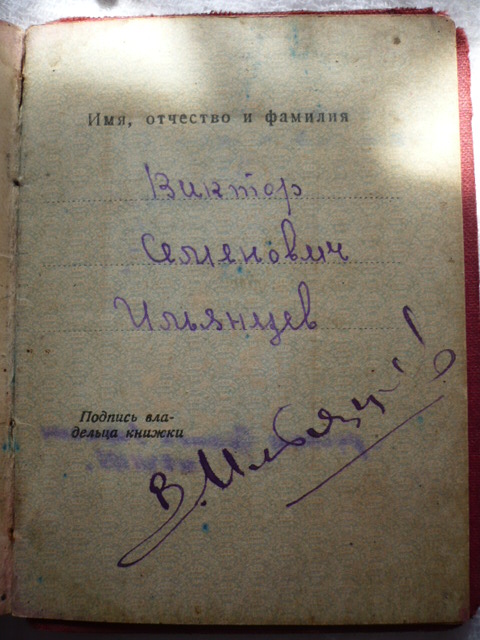 Имя, отчество и фамилия
Виктор
Семенович
Ильянцев
Подпись вла-
дельца книжки
В. Ильянц